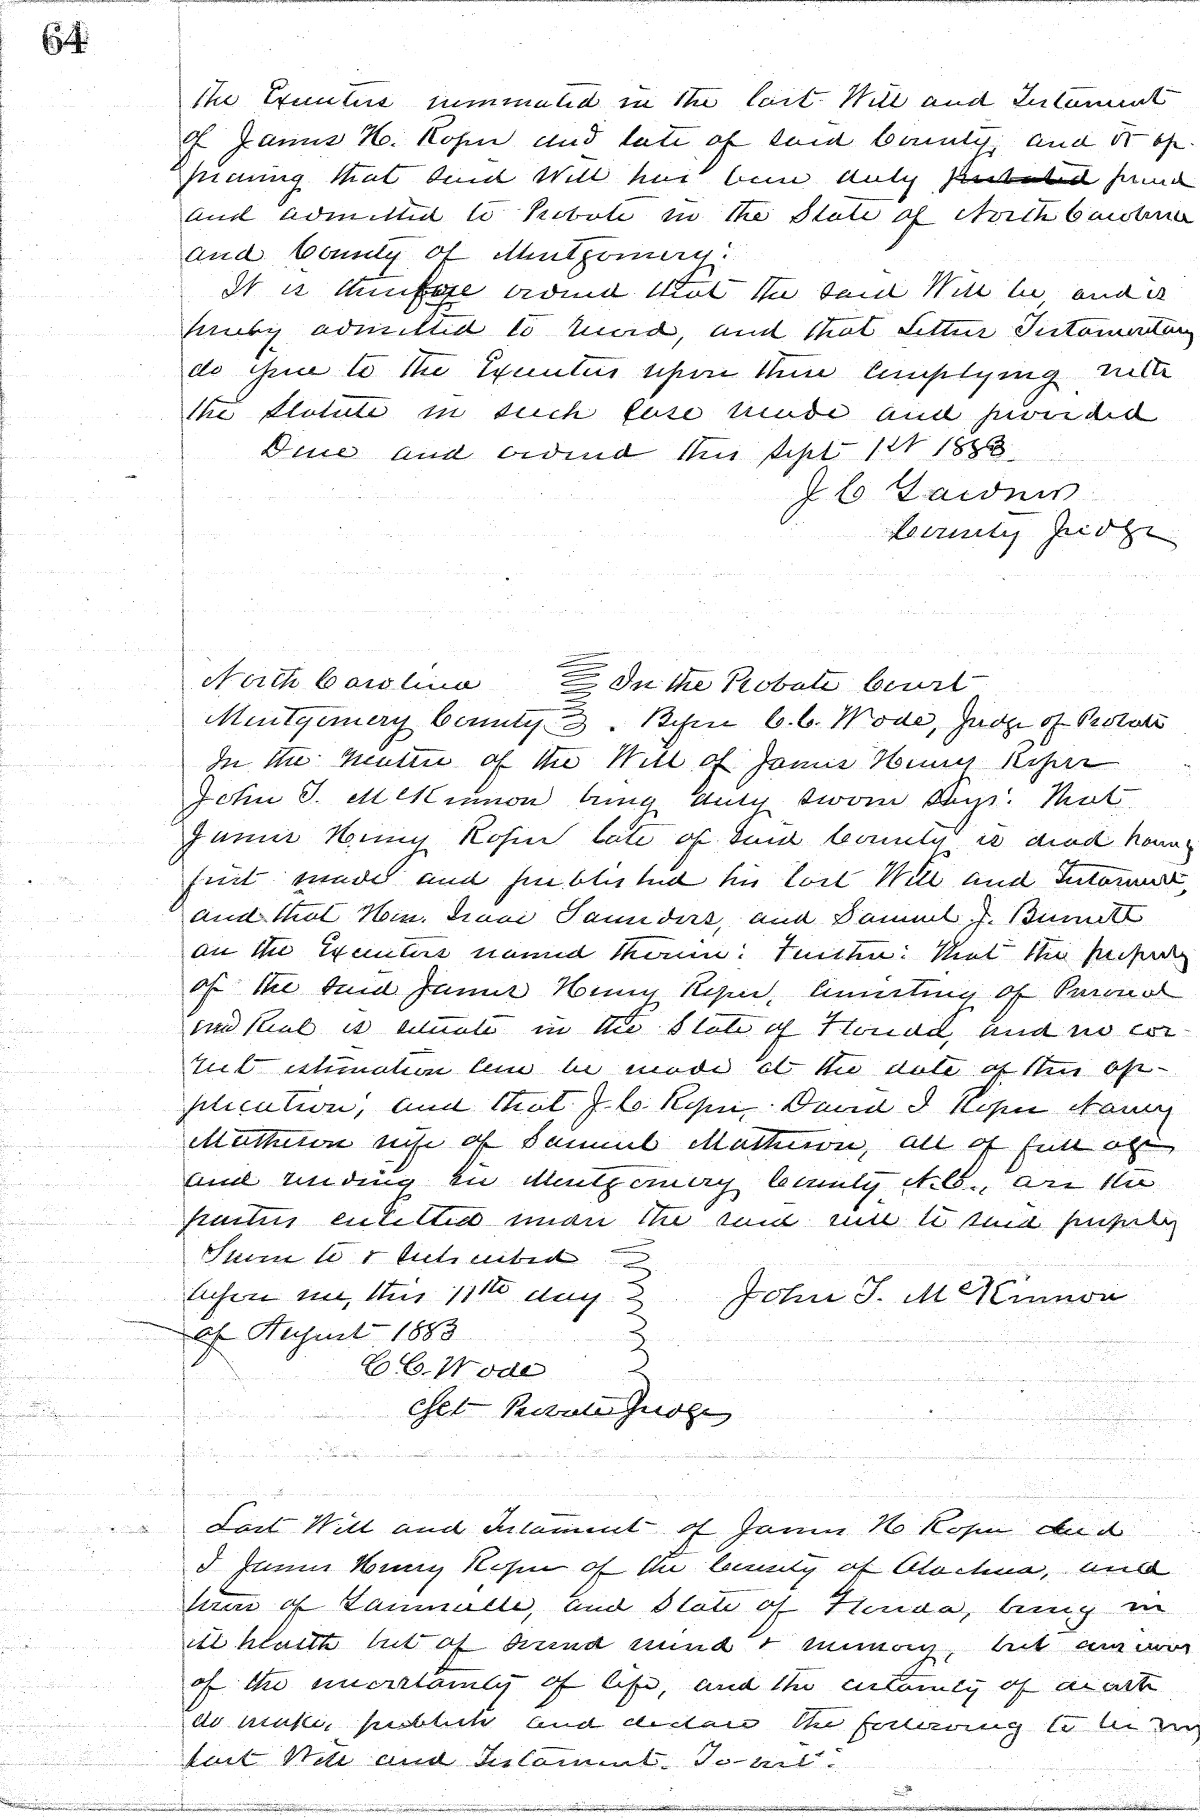 64
the Executors nominated in the last Will and Testament
of James H. Roper decd late of said County, and it ap-
pearing that said Will has been duly probated proved
and admitted to Probate in the State of North Carolina
and County of Montgomery:
It is therefore ordered that the said Will be, and is
hereby admitted to record, and that Letters Testamentary
do issue to the Executors upon their complying with
the Statute in such case made and provided
Done and ordered this Sept 1st 1883
J C Gardner
County Judge
North Carolina In the Probate Court
Montgomery County . Before C. C. Wade, Judge of Probate
In the matter of the Will of James Henry Roper
John T. McKinnon being duly sworn says: That
James Henry Roper late of said County is dead having
first made and published his last Will and Testament,
and that Hon. Isaac Saunders, and Samuel J. Burnett
are the Executors named therein: Further: That the property
of the said James Henry Roper, consisting of Personal
and Real is situate in the State of Florida, and no cor-
rect estimation can be made at the date of this ap-
plication; and that J. C. Roper, David I Roper Nancy
Matheson wife of Samuel Matheson, all of full age
and residing in Montgomery County N.C., are the
parties entitled under the said will to said property
Sworn to & subscribed
before me, this 11th day John T. McKinnon
of August 1883
C. C. Wade
Probate Judge
Last Will and Testament of James H Roper decd
I James Henry Roper of the County of Alachua, and
town of Gainesville, and State of Florida, being in
ill health but of sound mind & memory, but
of the uncertainty of life, and the certainty of death
do make, publish and declare the following to be my
last Will and Testament. To-wit: